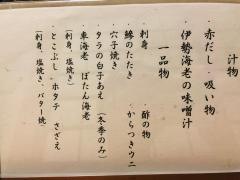 汁物
・赤だし・吸い物
・伊勢海老の味噌汁
一品物
・刺身　・酢の物
・鰺のたたき　・からつきウニ
・穴子焼き
・タラの白子あえ（冬季のみ）
・車海老・ぼたん海老
（刺身、塩焼き）
・とこぶし・ホタテ・さざえ
（刺身、塩焼き、バター焼